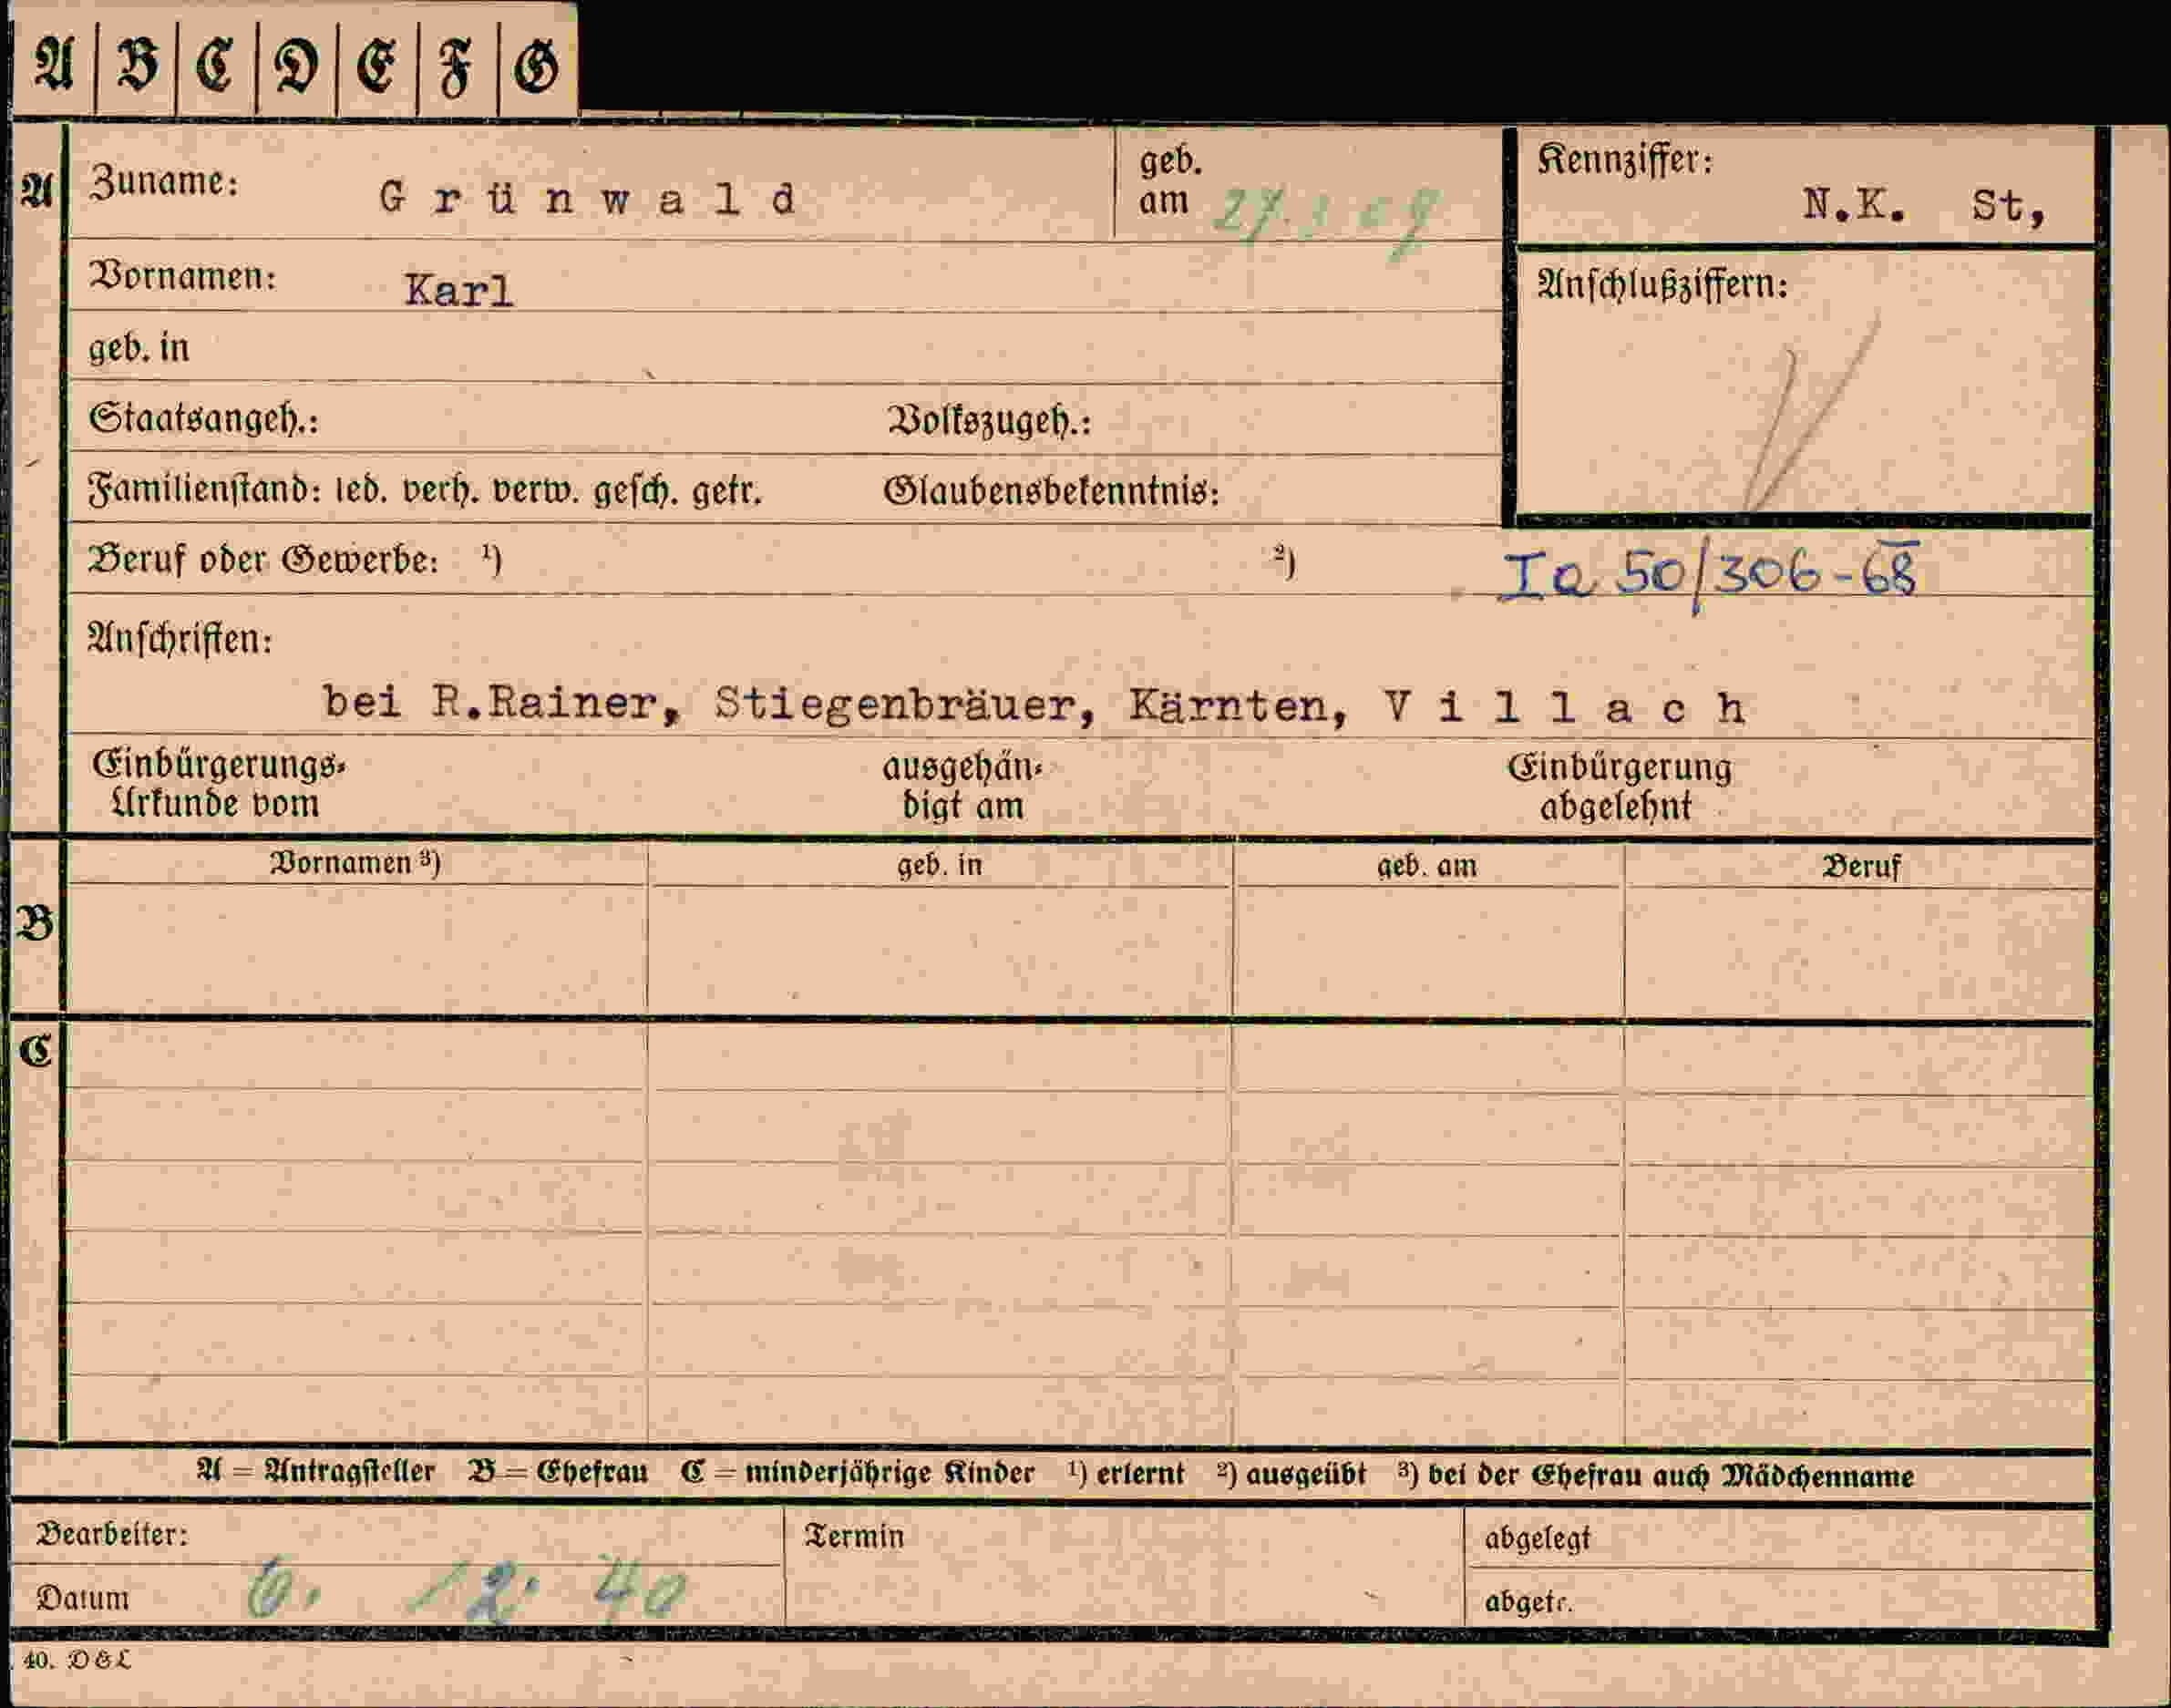 A B C D E F G
A Zuname: Grünwald geb. am 27. Kennziffer: N.K. St,
Vornamen: Karl Anschlußziffern:
geb. in
Staatsangeh.: Volkszugeh.:
Familienstand: led. verh. verw. gesch. getr. Glaubensbekenntnis:
Beruf oder Gewerbe: ¹) ²) Ia 50/306-68
Anschriften:
bei R.Rainer, Stiegenbräuer, Kärnten, Villach
Einbürgerungs- ausgehän- Einbürgerung
Urkunde vom digt am abgelehnt
Vornamen ³) geb. in geb. am Beruf
B
C
A = Antragsteller B = Ehefrau C = minderjährige Kinder ¹) erlernt ²) ausgeübt ³) bei der Ehefrau auch Mädchenname
Bearbeiter: Termin abgelegt
Datum 6. 12. 40 abgetr.
40. D&L